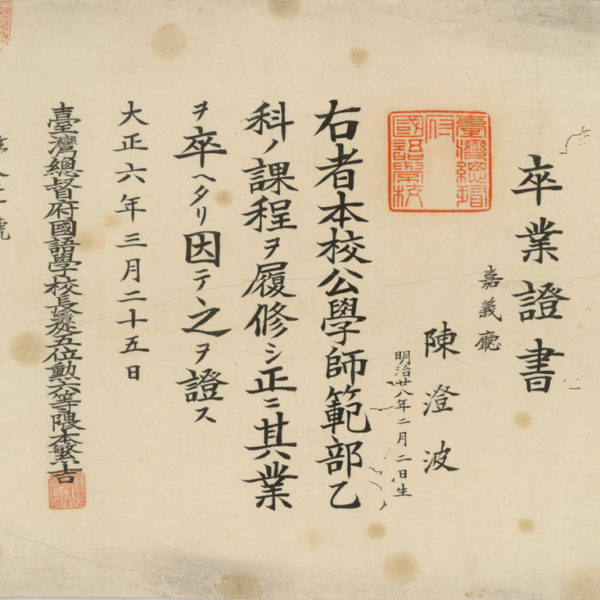 卒業證書
嘉義廳
陳澄波
明治廿八年二月二日生
臺灣總督府國語學校
右者本校公學師範部乙
科ノ課程ヲ履修シ正ニ其業
ヲ卒ヘタリ因テ之ヲ證ス
大正六年三月二十五日
臺灣總督府國語學校長從五位勳六等隈本繁吉